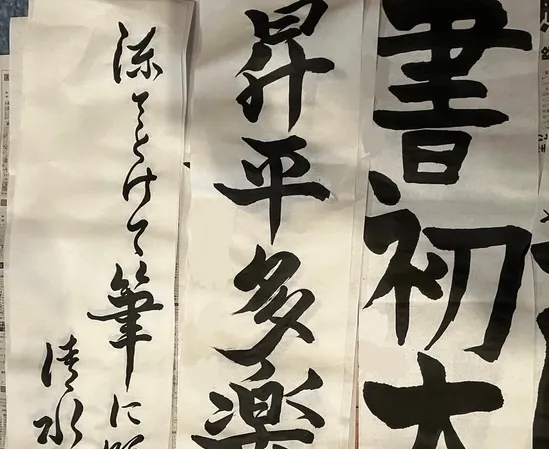 書初大
昇平多楽
凍てとけて筆に
清水